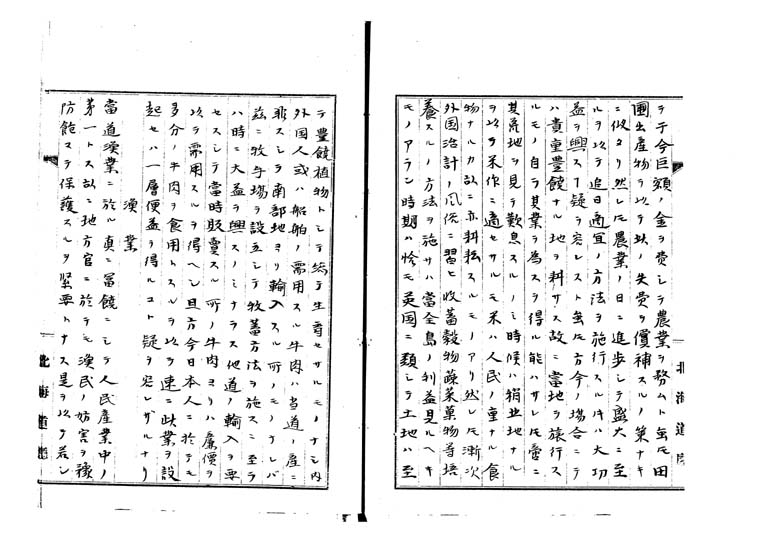 ヲ于今巨額ノ金ヲ費シテ農業ヲ務ムト虽𪜈田
圃出産物ヲ以テ以ノ失費ヲ償補スルノ策ナキ
ニ似タリ然レ𪜈農業ノ日ニ進歩シテ盛大ニ至
ルヲ以テ追日適宜ノ方法ヲ施行スルキハ大切
益ヲ興ス丁疑ヲ容レスト虽𪜈方今ノ場合ニテ
ハ貴重豊饒ナル地ヲ料サス故ニ當地ヲ旅行ス
ルモノ自ラ其業ヲ為スヲ得ル能ハサレ𪜈啻ニ
其廃地ヲ見テ歎息スルノミ時候ハ稍北地ナル
ヲ以テ米作ニ適セサルモ米ハ人民ノ重ナル食
物ナルカ故ニ亦耕耘スルモノアリ然レ𪜈漸次
外国治計ノ風俗ニ習ヒ收蓄穀物蔬菜菓物等培
養スルノ方法ヲ施サハ當全島ノ利益見ルヘキ
モノアラン時期ハ恰モ英国ニ類シテ土地ハ至
北海道
テ豊饒植物トシテ総テ生育セサルモノナシ内
外国人或ハ船舶ノ需用スル牛肉ハ当道ノ産ニ
非スシテ南部地ヨリ輸入スル所ノモノナレバ
茲ニ牧牛場ヲ設立シテ牧蓄方法ヲ施スニ至ラ
ハ時ニ大益ヲ興スノミナラス他道ノ輸入ヲ要
セスシテ當時販賣スル所ノ牛肉ヨリハ廉價ヲ
以テ需用スルヲ得ヘシ且方今日本人ニ於テモ
多分ノ牛肉ヲ食用トスルヲ以テ速ニ此業ヲ設
起セハ一層便益ヲ得ルコト疑ヲ容レザルナリ
漁業
當道漁業ニ於ル真ニ冨饒ニシテ人民産業中ノ
第一トス故ニ地方官ニ於テモ漁民ノ妨害ヲ豫
防飽ステ保護スルヲ緊要トナス是ヲ以テ若シ
北海道